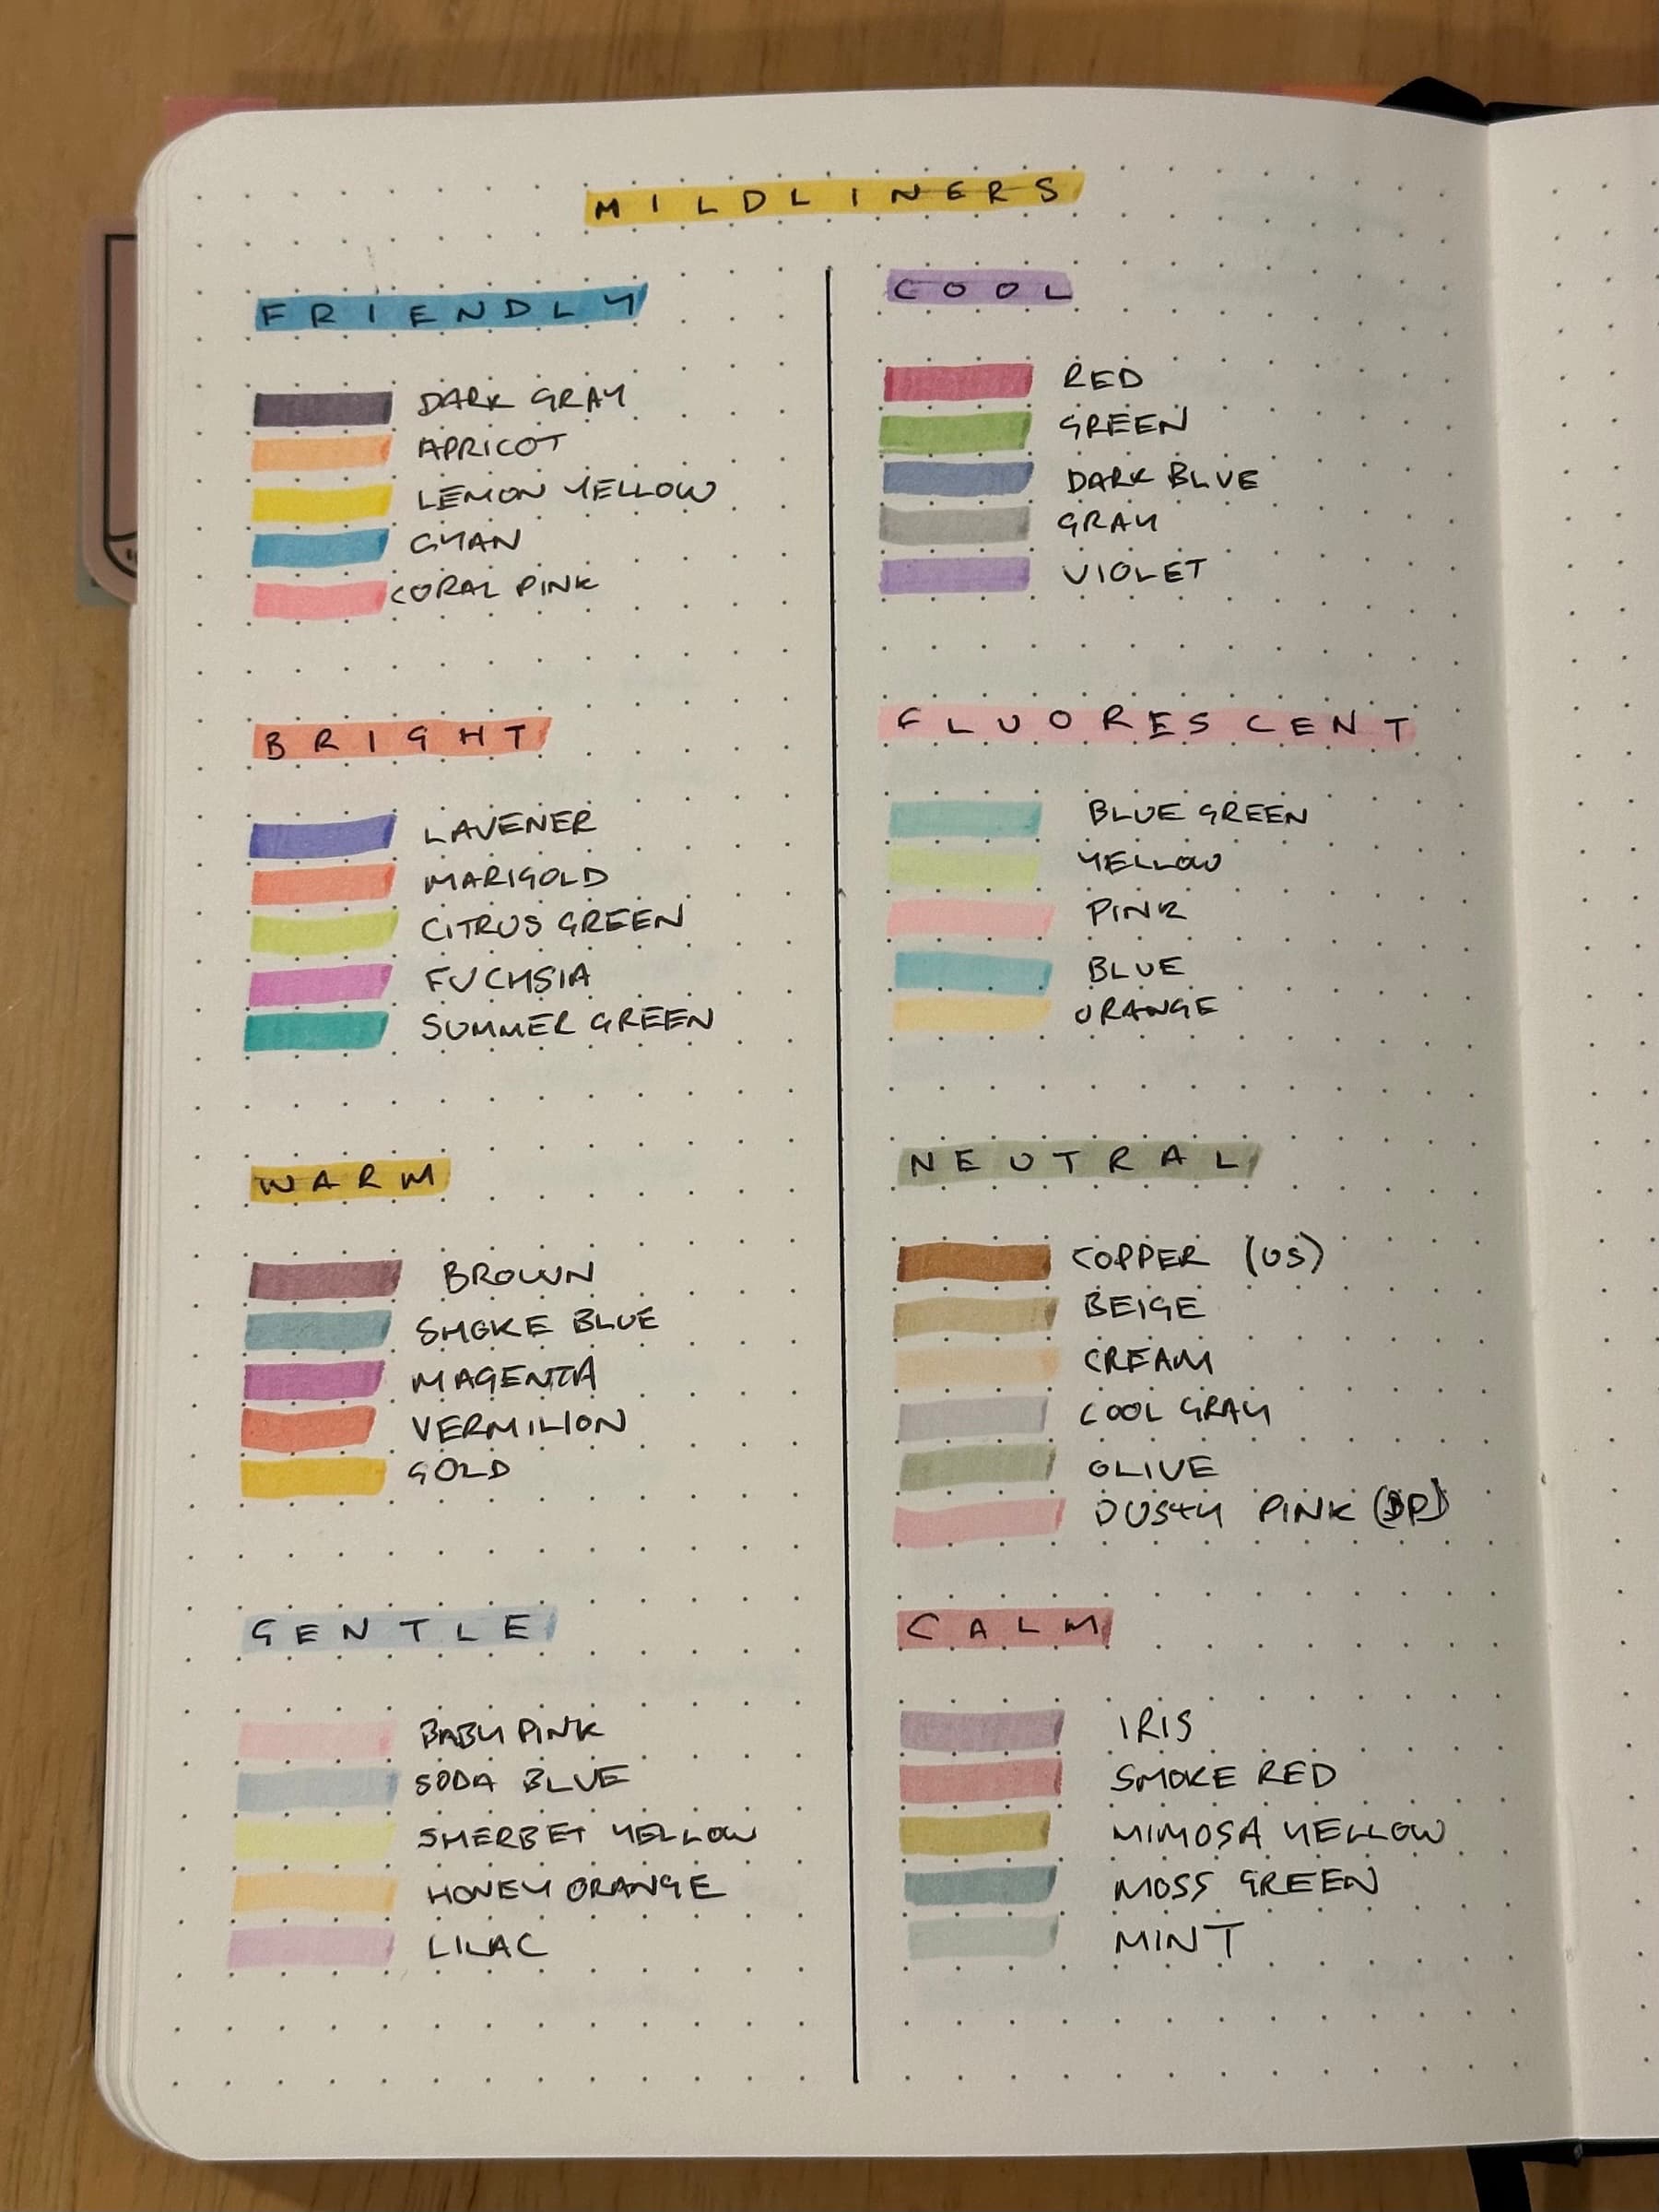 MILDLINERS
FRIENDLY
DARK GRAY
APRICOT
LEMON YELLOW
CYAN
CORAL PINK
BRIGHT
LAVENER
MARIGOLD
CITRUS GREEN
FUCHSIA
SUMMER GREEN
WARM
BROWN
SMOKE BLUE
MAGENTA
VERMILION
GOLD
GENTLE
BABY PINK
SODA BLUE
SHERBET YELLOW
HONEY ORANGE
LILAC
COOL
RED
GREEN
DARK BLUE
GRAY
VIOLET
FLUORESCENT
BLUE GREEN
YELLOW
PINK
BLUE
ORANGE
NEUTRAL
COPPER (US)
BEIGE
CREAM
COOL GRAY
OLIVE
DUSTY PINK
CALM
IRIS
SMOKE RED
MIMOSA YELLOW
MOSS GREEN
MINT